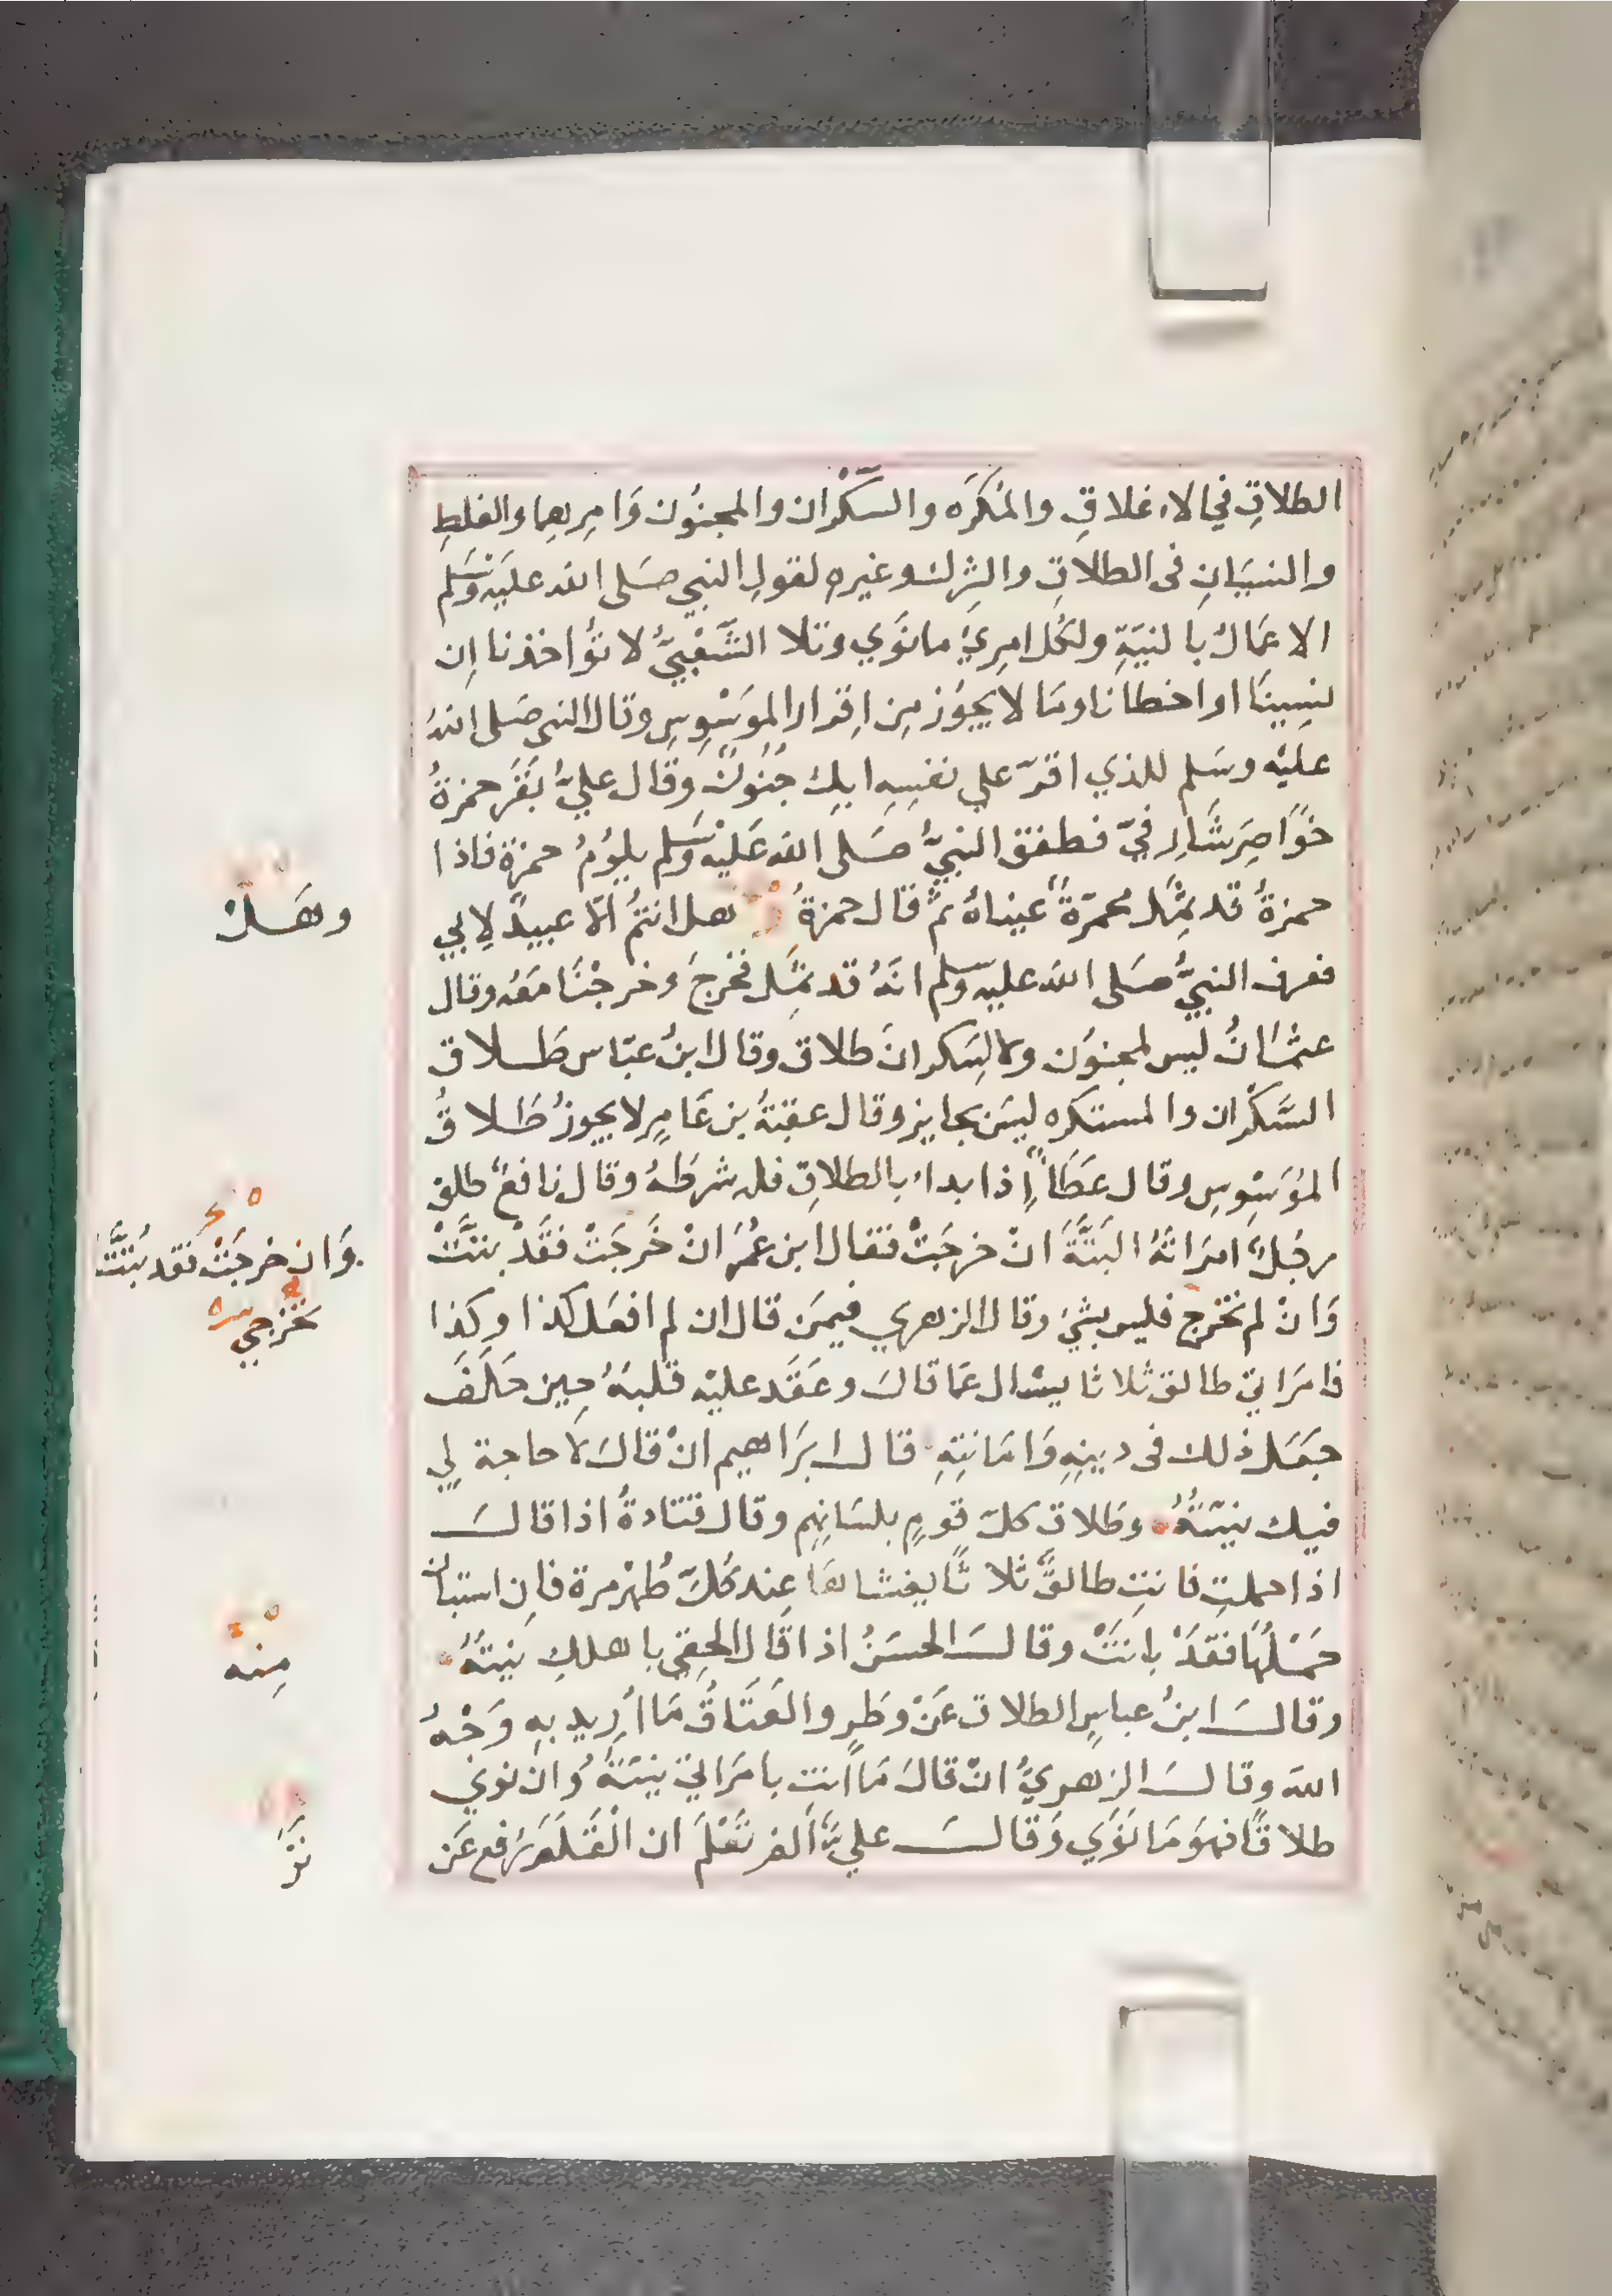 الطلاقِ في الاغلاقِ والمُكرَه والسَّكْران والمجنوُن وَامرِهِما والغلطِ
والنسيَانِ فى الطلاقِ والشِرك وغيرهِ لقولِ النبي صَلى الله عليَه وَسَلم
الاعمَال بالنيَةِ ولكُل امرِيءُ مانوَي وتلا الشَّعْبيُّ لا تؤُاخذنا اِن
نسِينَا او اخطانا ومَا لا يجوُز مِن اِقرار الموَسْوِسِ وقال النبى صَلى اللهُ
عليْه وسَلم للذي اقرّ علي نفسِهِ ابِك جنُوُنٌ وقال عليٌّ بَقرَ حمزةُ
خوَاصِرَ شَارِفيّ فطفق النبيُّ صَلى الله عَليْه وَسَلم يلوُمُ حمزة فاذا
حمزةُ قد ثمِلَ محمرّةٌ عيناهُ ثم قال حمزةُ هل انتمُ الّا عبيدٌ لِابي
فعرف النبيُّ صَلى الله عليه وسلم انهُ قد ثمِلَ فخرجَ وخرجْنَا مَعَه وقال
عثمَانُ ليس لمجنوُن ولا لسَكران طلاق وقال ابنُ عبّاس طَلاق
السَّكْران والمستكره ليسَ بجايز وقال عقبَةُ بن عَامِرٍ لا يجوزُ طَلاقُ
الموُسَوِسِ وقال عَطَاءٌ اِذا بداء بالطلاقِ فله شرطَهُ وقال نافعٌ طلق
رجُلٌ امرَاتَهُ البَتَّةَ انْ خرجَتْ فقال ابن عُمَرَ انْ خَرجَتْ فقَدْ بتتَّتْ
وَانْ لم تخرج فليس بشيْ وقال الزهري فيمَن قال ان لم افعَل كذا وكذا
فامرَاتي طالق ثلاثا يسْال عمَا قالَ وعَقَد عليْه قلبَهُ حِين حَلَفَ
جعَلَ ذلك فى دينِهِ وَامَانتِهِ قال ابرَاهيم انْ قالَ لَا حاجة لِي
فيك نيتّهُ وطَلاق كلّ قومٍ بلسَانِهِم وقال قتادةُ اذا قالَ
اذا حملتِ فانتِ طالقٌ ثلاثًا يغشاهَا عِند كُلّ طُهْر مرة فاِن استبان
حَمْلُهَا فقدْ بانتْ وقالَ الحسَنُ اذا قَال الحقِي باهلِكِ نيتَهُ
وقالَ ابنُ عباسٍ الطلاق عَنْ وَطَرٍ والعَتَاقُ مَا اُرِيد بهِ وَجْهُ
الله وقالَ الزهريُّ انْ قالَ مَا انتِ بامرَاتي نيتّهُ وَان نوي
طلاقًا فهوَ مَا نوَي وَقالَ عليٌّ اَلم تَعْلَمَ ان الْقَلَمَ رُفع عَن
وهَلْ
وَان خرجَتْ فقد بُتَّتْ
تخرُجي
مِنه